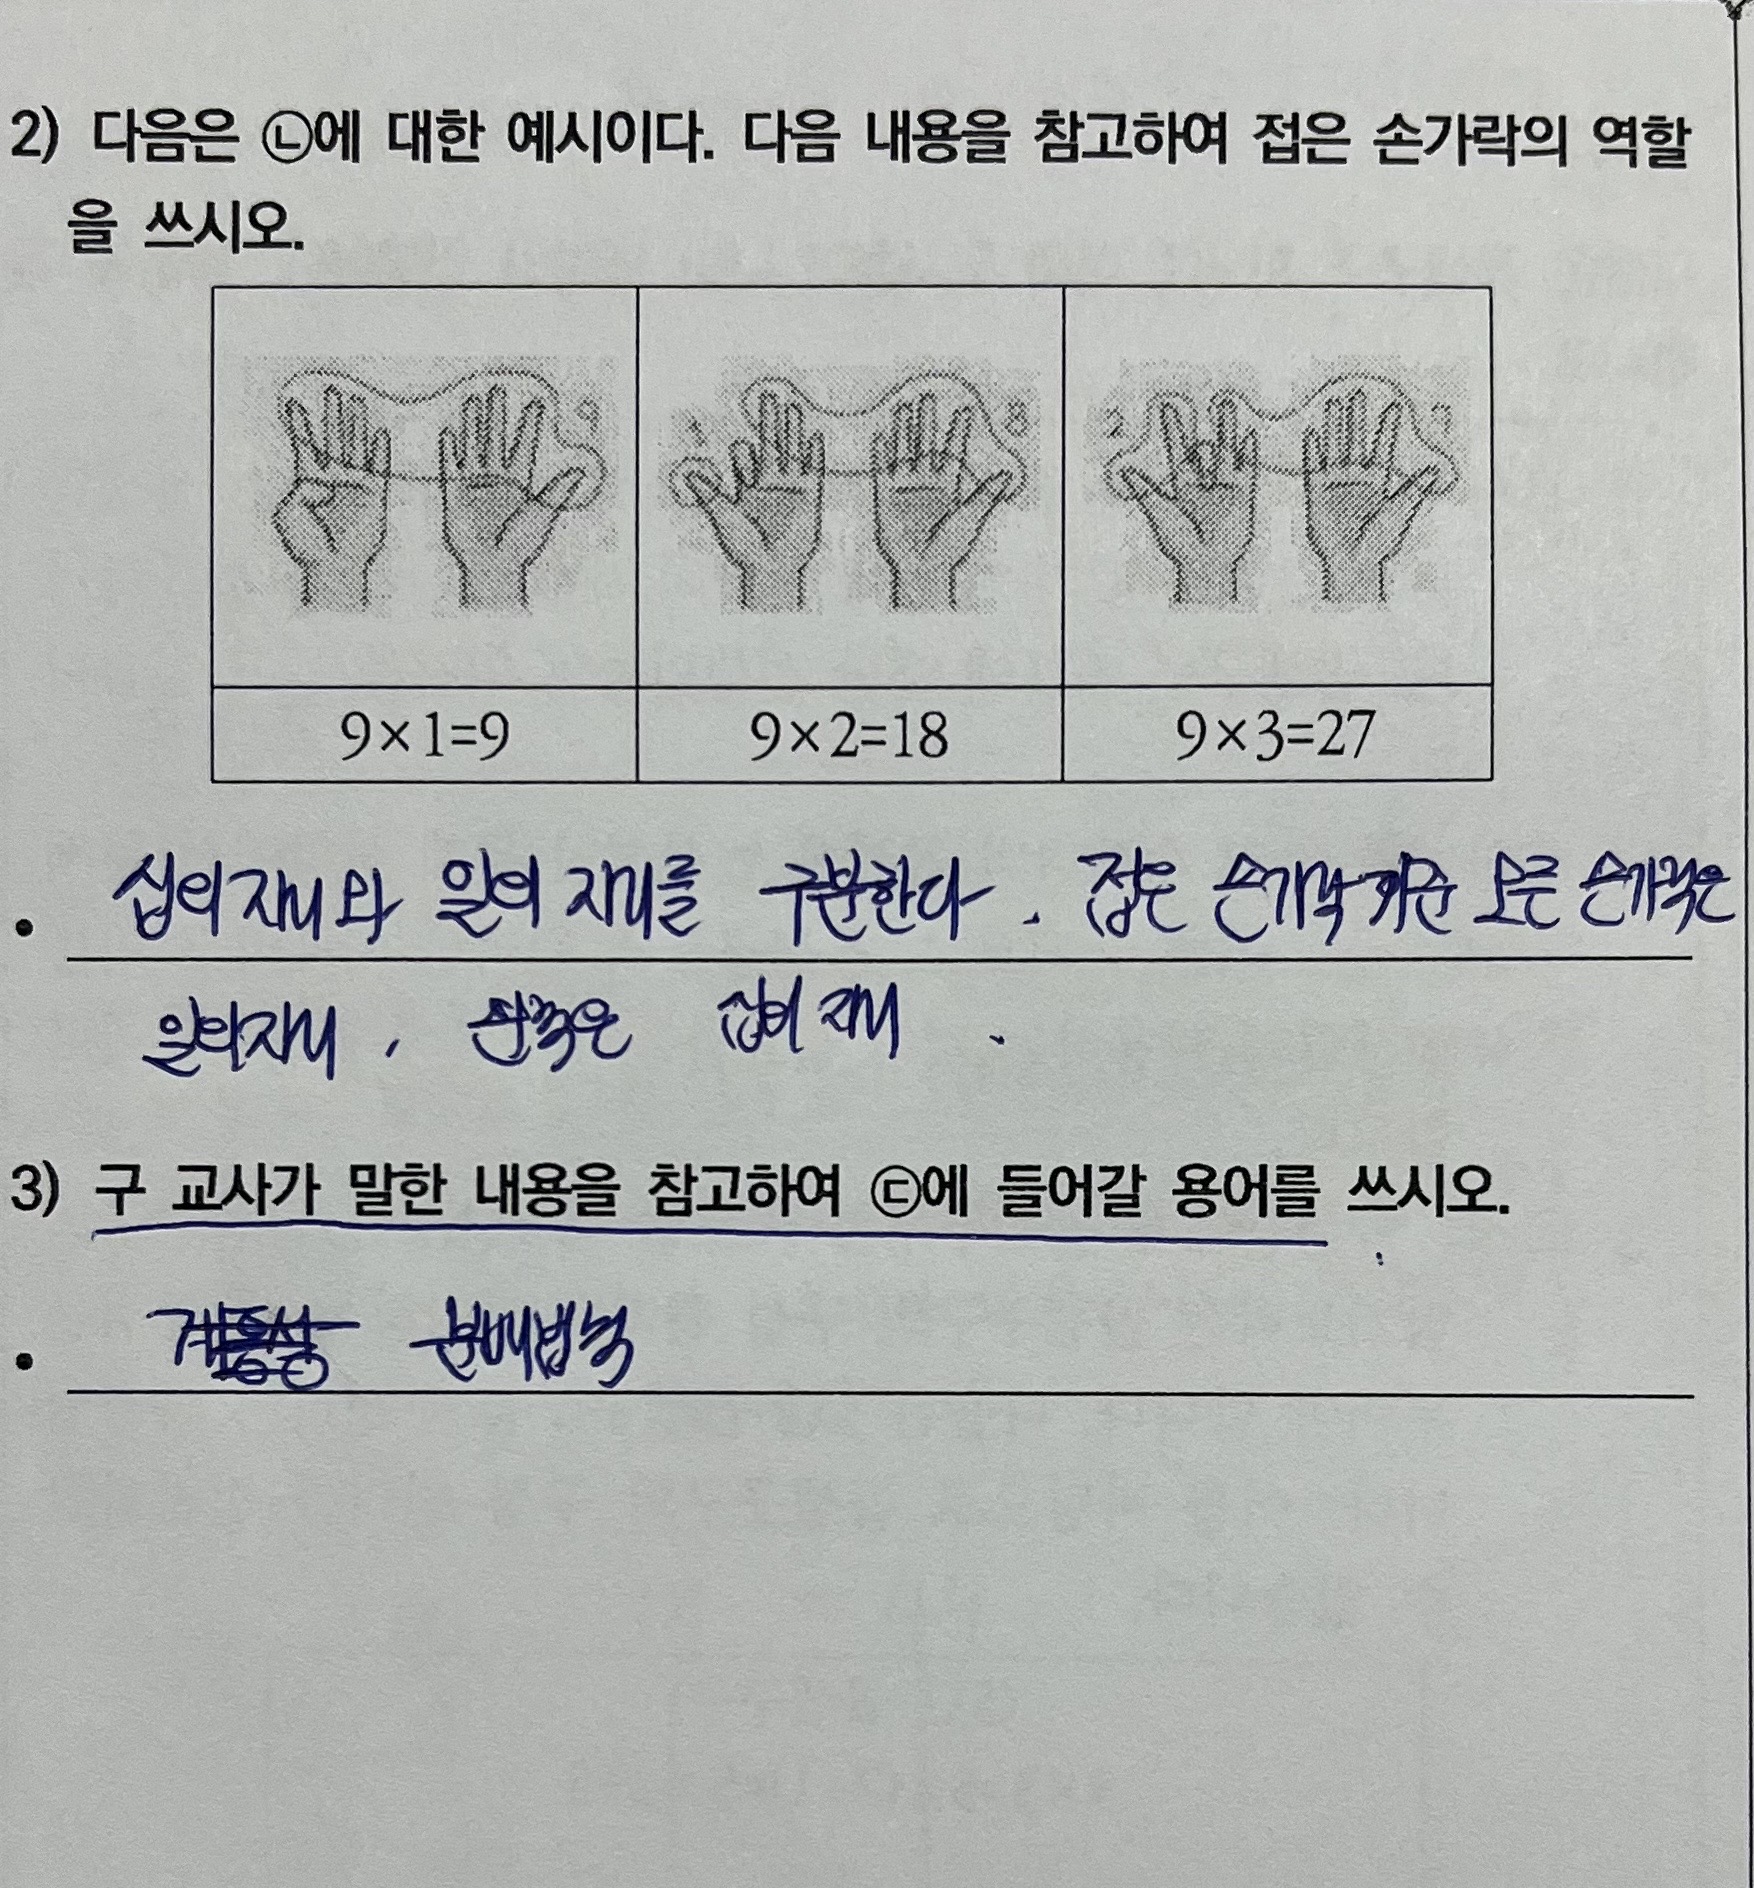 2) 다음은 ㉡에 대한 예시이다. 다음 내용을 참고하여 접은 손가락의 역할
을 쓰시오.
9 1 8 2 7
9×1=9 9×2=18 9×3=27
• 십의 자리와 일의 자리를 구분한다. 접은 손가락 기준 오른 손가락은
일의자리, 왼쪽은 십의 자리.
3) 구 교사가 말한 내용을 참고하여 ㉢에 들어갈 용어를 쓰시오.
• 분배법칙